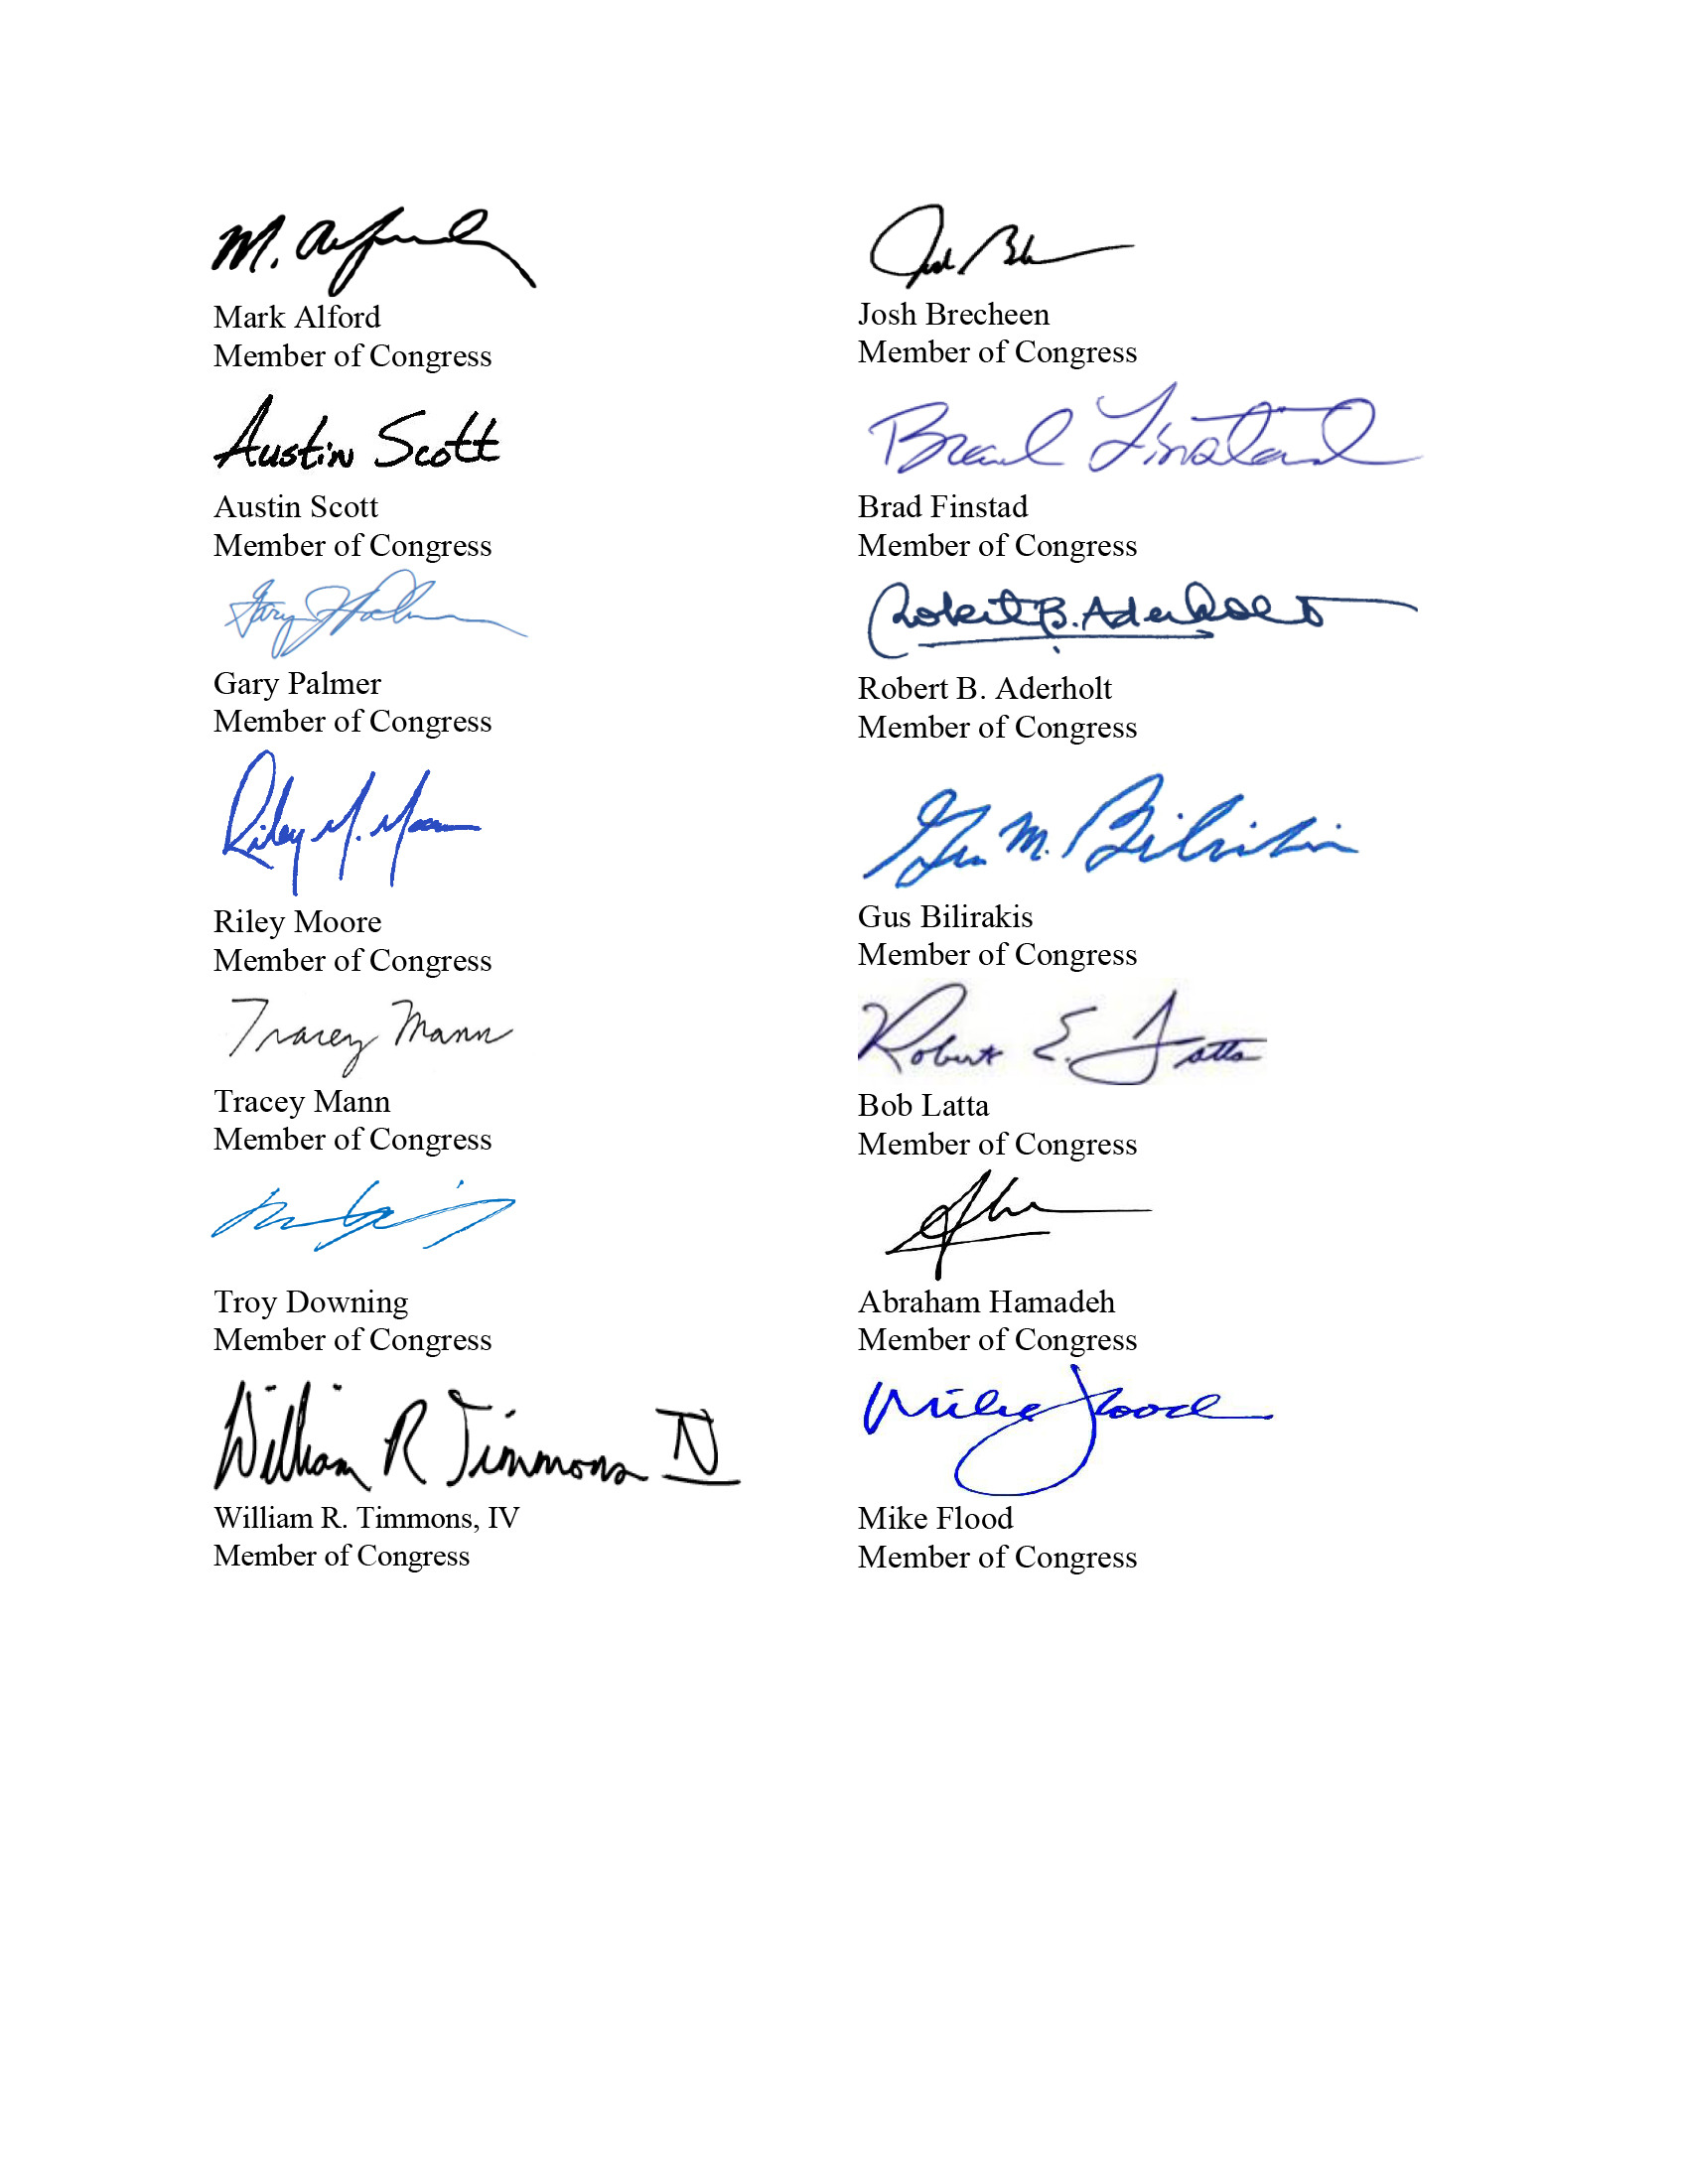 M. Alford
Mark Alford
Member of Congress
Josh
Josh Brecheen
Member of Congress
Austin Scott
Austin Scott
Member of Congress
Brad Finstad
Brad Finstad
Member of Congress
Gary
Gary Palmer
Member of Congress
Robert B. Aderholt
Robert B. Aderholt
Member of Congress
Riley M. Moore
Riley Moore
Member of Congress
Gus M. Bilirakis
Gus Bilirakis
Member of Congress
Tracey Mann
Tracey Mann
Member of Congress
Robert E. Latta
Bob Latta
Member of Congress
Troy Downing
Member of Congress
Abraham Hamadeh
Member of Congress
William R Timmons IV
William R. Timmons, IV
Member of Congress
Mike Flood
Mike Flood
Member of Congress